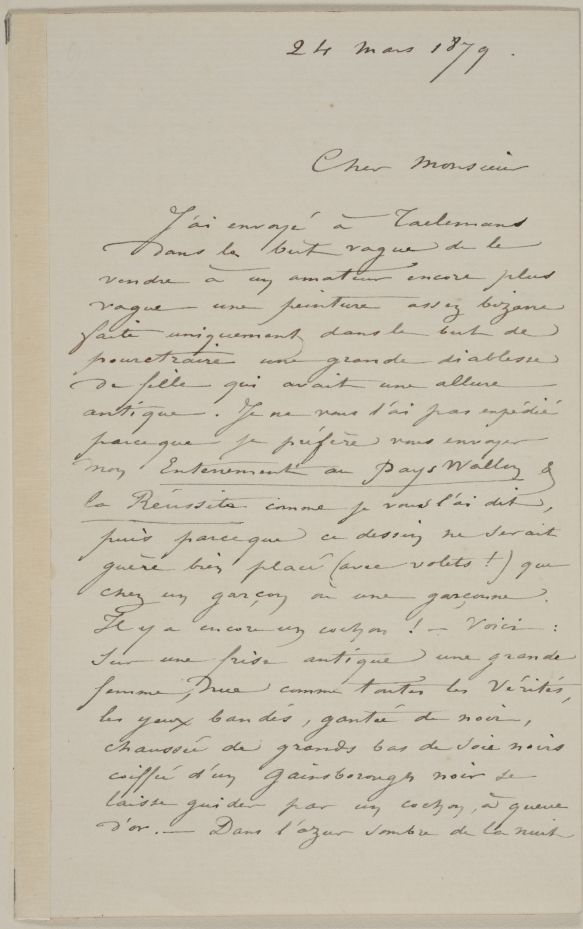 24 mars 1879.
Cher Monsieur
J'ai envoyé à Taelemans
dans le but vague de le
vendre à un amateur encore plus
vague une peinture assez bizarre
faite uniquement dans le but de
pourctraire une grande diablesse
de fille qui avait une allure
antique. Je ne vous l'ai pas expédié
parceque je préfère vous envoyer
mon Enterrement au Pays Wallon &
la Réussite comme je vous l'ai dit,
puis parceque ce dessin ne serait
guère bien placé (avec volets !) que
chez un garçon ou une garçonne.
Il y a encore un cochon ! — Voici :
Sur une frise antique une grande
femme, nue comme toutes les Vérités,
les yeux bandés, gantée de noir,
chaussée de grands bas de soie noirs
coiffée d'un Gainsborough noir se
laisse guider par un cochon, à queue
d'or. — Dans l'azur sombre de la nuit